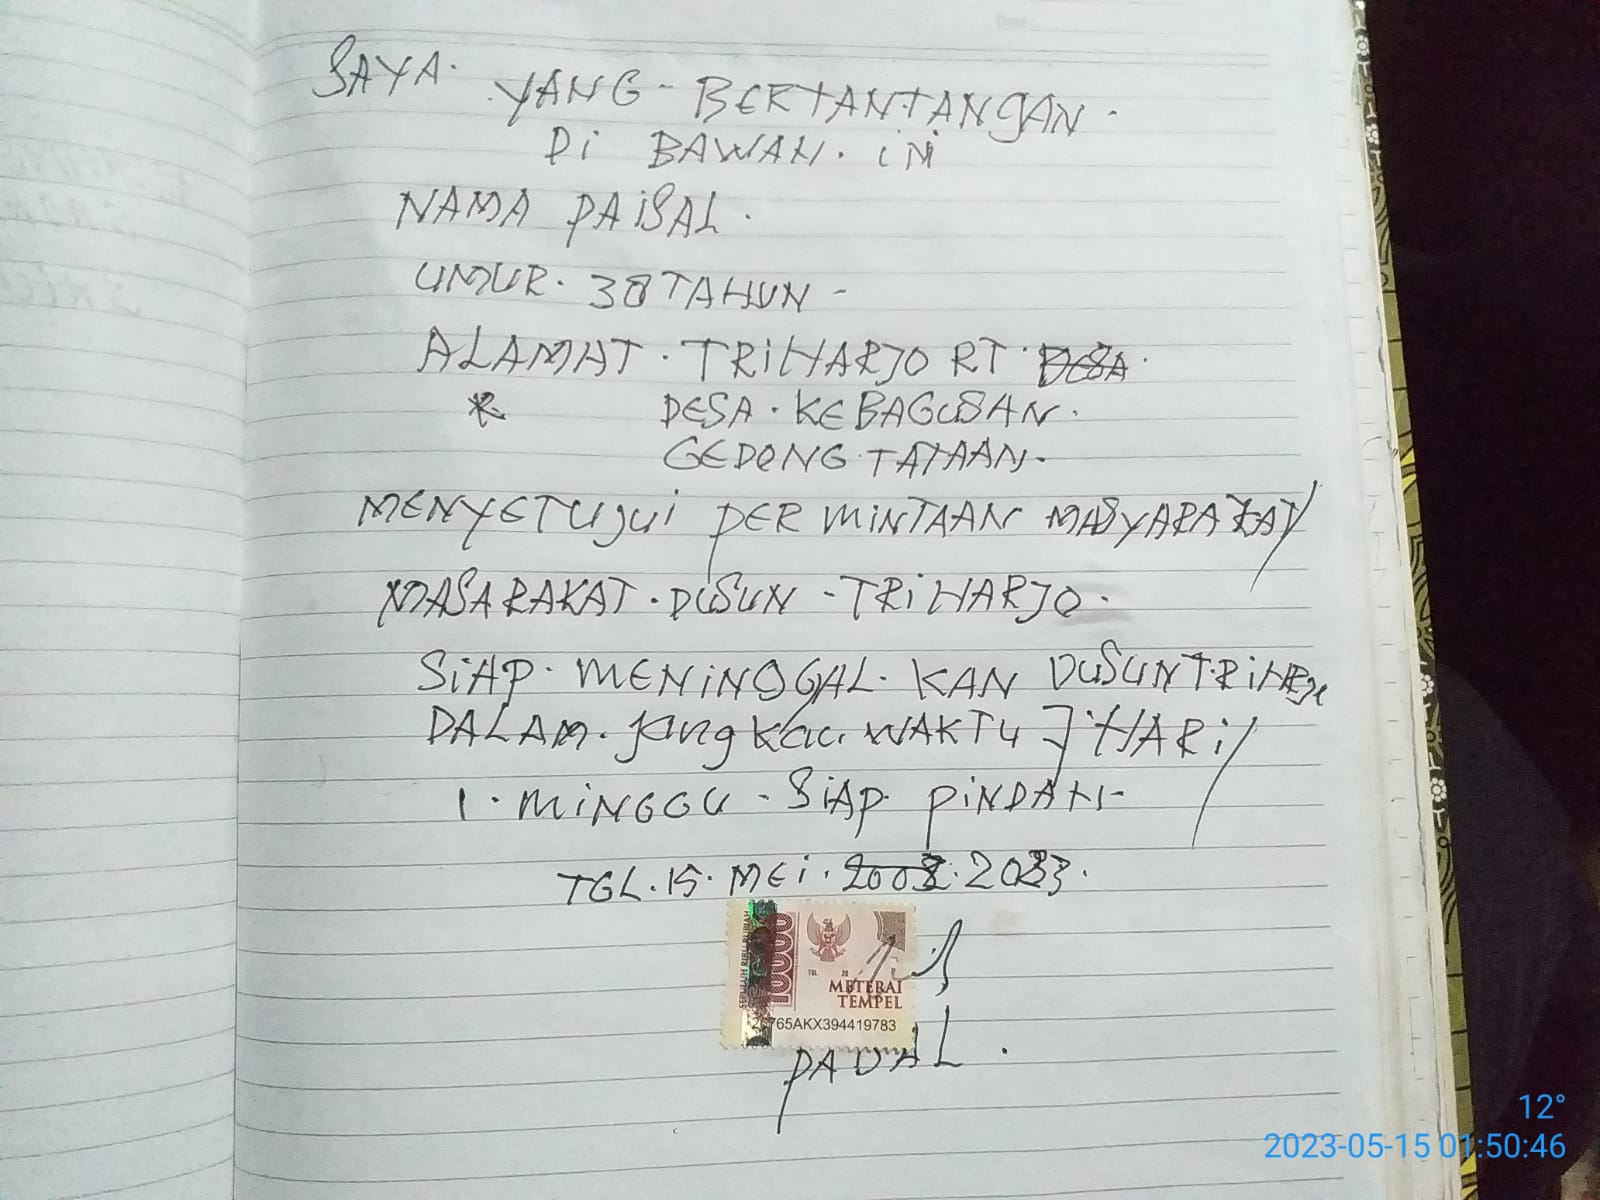 SAYA. YANG - BERTANTANGAN.
Di BAWAH. iNi
NAMA PAiSAL.
UMUR. 38 TAHUN -
ALAMAT. TRiHARJO RT. DESA.
DESA. KEBAGUSAN.
GEDONG TATAAN.
MENYETUJUi PERMINTAAN MASYARAKAT/
MASARAKAT. DUSUN - TRiHARJO.
SiAP. MENiNGGAL. KAN DUSUN TRiHRJo
DALAM. JangKau. WAKTU 7 HARi/
1. MiNGGU - SiAP. PiNDAH-
TGL. 15. MEi. 2003. 2023.
SEPULUH RIBU RUPIAH
10000
TGL 20
METERAI
TEMPEL
765AKX394419783
12°
2023-05-15 01:50:46